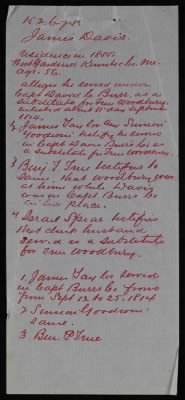 James Davis.
Residence in 1855.
West Gardiner Kennebec Me.
age. 56.
alleges he served under
Capt David C. Burr as a
substitute for Tim Woodbury.
enlisted about 11 day September
1814.
2 James Taylor and Simeon
Goodwin testify he served
in Capt Davis Burrs Co as
a substitute for Tim Woodbury.
3 Benj. F. True testifies to
same. that Woodbury was
at home while Davis
was in Capt Burrs Co
in his place.
4 Israel Spear testifies
that
husband
served as a substitute
for Tim Woodbury.
1. James Taylor served
in Capt Burrs Co from
from Sept 12 to 25. 1814
2 Simeon Goodwin
same.
3 Ben F True